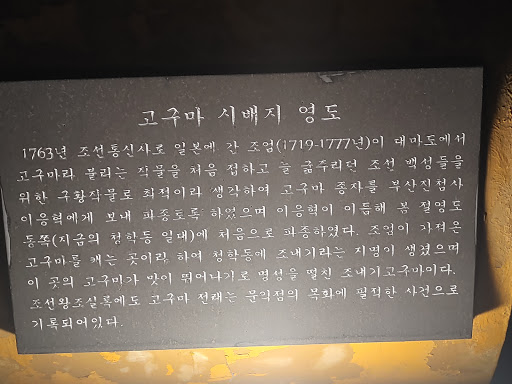 고구마 시배지 영도
1763년 조선통신사로 일본에 간 조엄(1719-1777년)이 대마도에서
고구마라 불리는 작물을 처음 접하고 늘 굶주리던 조선 백성들을
위한 구황작물로 최적이라 생각하여 고구마 종자를 부산진첨사
이응혁에게 보내 파종토록 하였으며 이응혁이 이듬해 봄 절영도
동쪽(지금의 청학동 일대)에 처음으로 파종하였다. 조엄이 가져온
고구마를 캐는 곳이라 하여 청학동에 조내기라는 지명이 생겼으며
이 곳의 고구마가 맛이 뛰어나기로 명성을 떨친 조내기고구마이다.
조선왕조실록에도 고구마 전래는 문익점의 목화에 필적한 사건으로
기록되어있다.